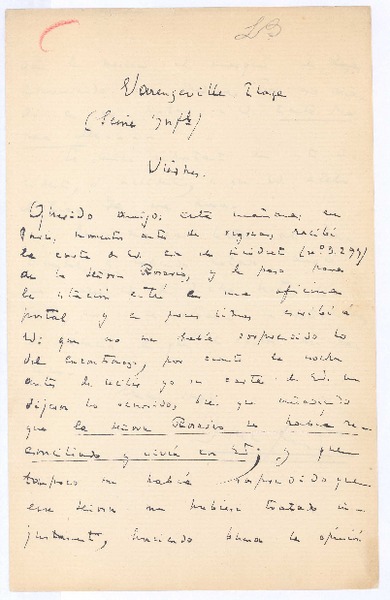 Varengeville Plage
(Seine Infre)
Viernes.
Querido amigo: esta mañana, en
Paris, momentos antes de regresar, recibí
la carta de Ud. con el incidente (nº 3.279)
de la Señora Rosario, y de paso para
la estación entré en una oficina
postal y a pocas líneas escribí á
Ud. que no me había sorprendido lo
del encontronazo, por cuanto la noche
antes de recibir yo su carta de Ud. me
dijeron lo sucedido, bien que añadiendo
que la señora Rosario se había re-
conciliado y vivía con Ud.; y que
tampoco me había sorprendido que
esa señora me hubiese tratado in-
justamente, haciendo buena la opinión